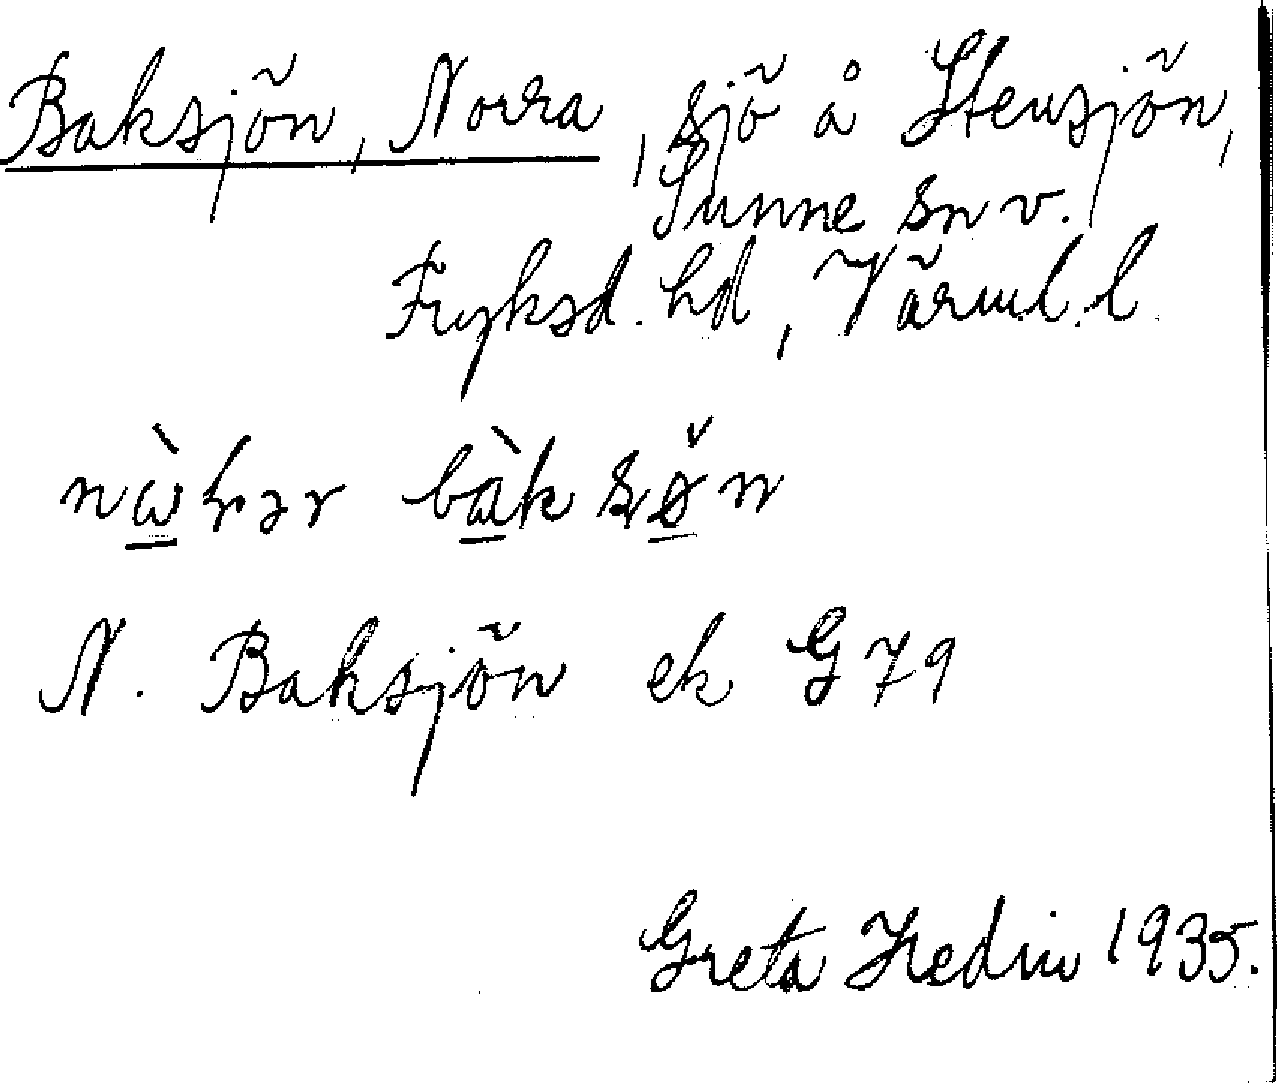 Baksjön, Norra, sjö å Stensjön,
Sunne sn v.
Fryksd. hd, Värml. l
N. Baksjön ek G79
Greta Hedin 1935.